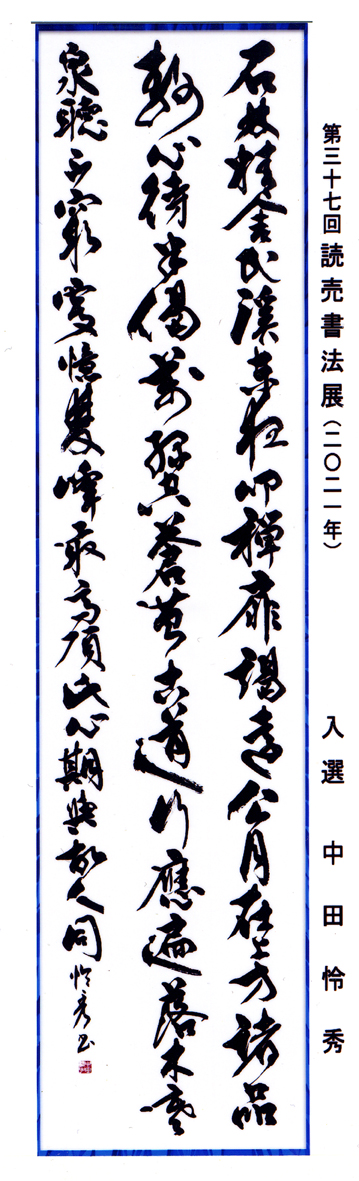 第三十七回読売書法展（二〇二一年） 入選 中田怜秀
石林精舎武溪東夜叩禅扉謁遠公月在上方諸品
静心待半偈萬縁空蒼苔古道行應遍落木寒
泉聴不窮更憶雙峰最高頂此心期與故人同 怜秀書